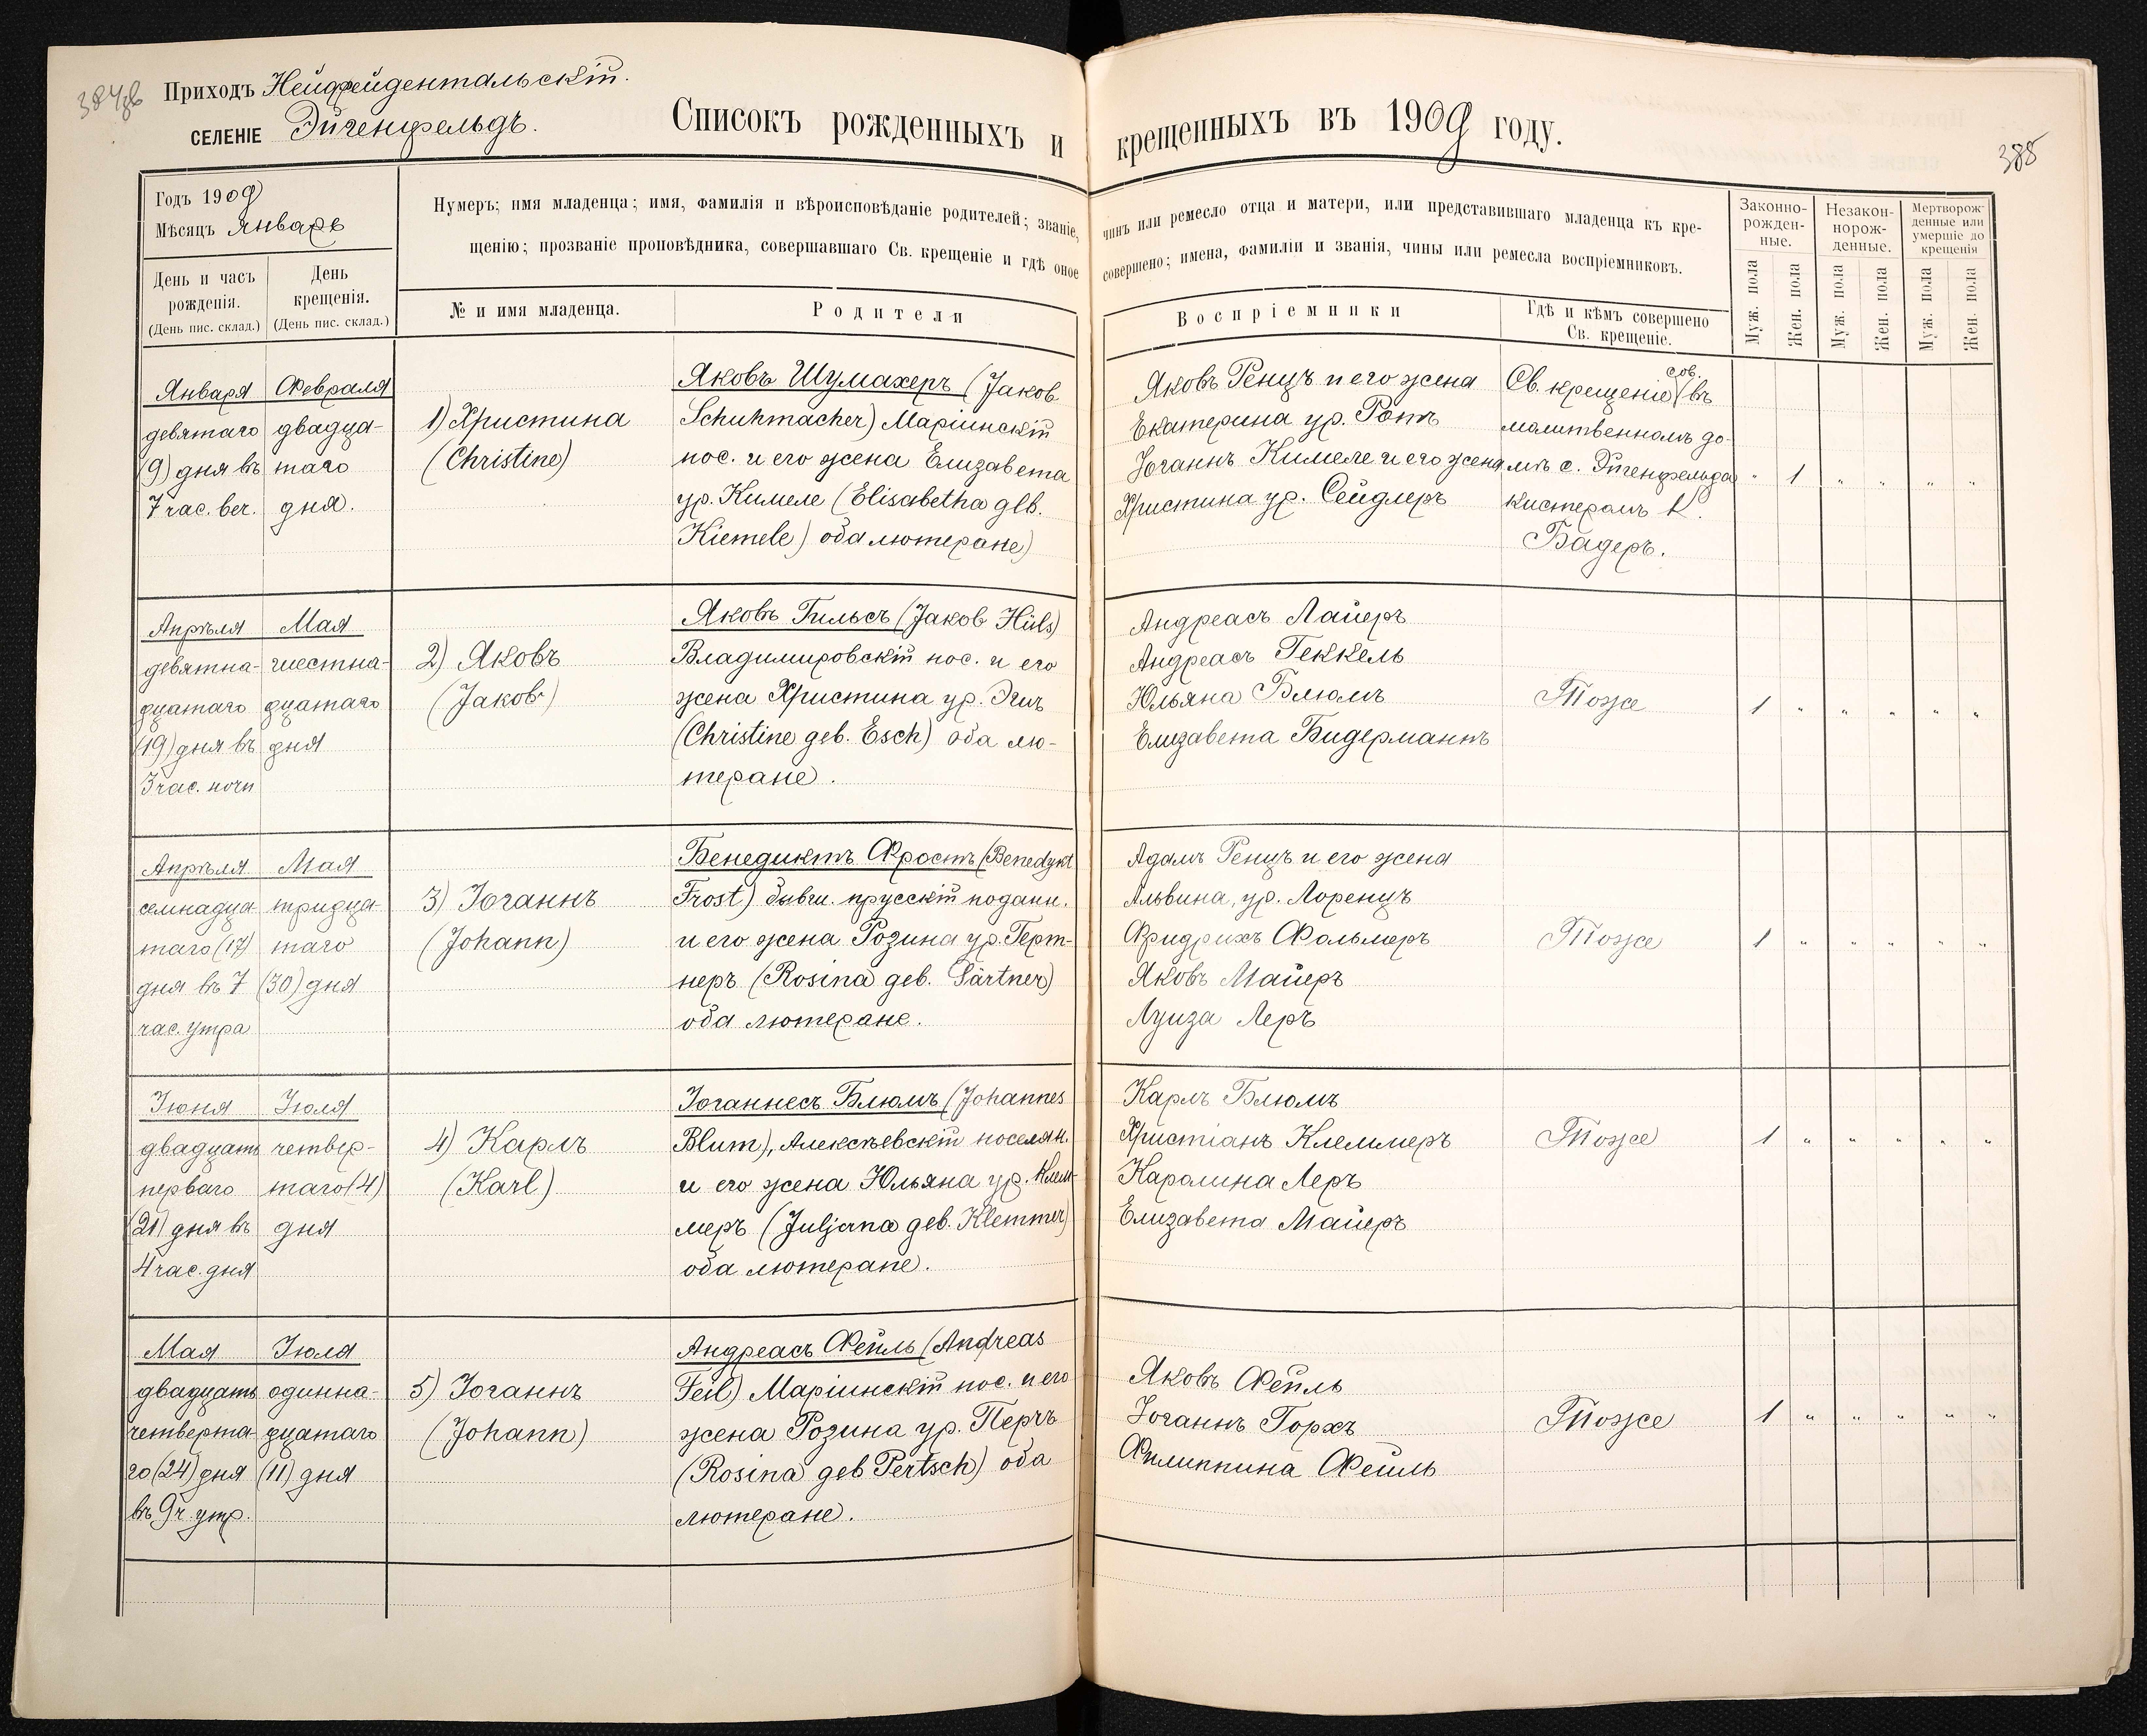 387об
Приходъ Нейфрейдентальскій.
СЕЛЕНІЕ Эйгенфельдъ.
Списокъ рожденныхъ и крещенныхъ въ 1909 году.
388
Годъ 1909
Мѣсяцъ Январь
День и часъ рожденія.
(День пис. склад.)
День крещенія.
(День пис. склад.)
Нумеръ; имя младенца; имя, фамилія и вѣроисповѣданіе родителей; званіе, чинъ или ремесло отца и матери, или представившаго младенца къ кре-
щенію; прозваніе проповѣдника, совершавшаго Св. крещеніе и гдѣ оное совершено; имена, фамиліи и званія, чины или ремесла воспріемниковъ.
№ и имя младенца.
Родители
Воспріемники
Гдѣ и кѣмъ совершено
Св. крещеніе.
Законно-
рожден-
ные.
Незакон-
норож-
денные.
Мертворож-
денные или
умершіе до
крещенія
Муж. пола
Жен. пола
Муж. пола
Жен. пола
Муж. пола
Жен. пола
Января
девятаго
(9) дня въ
7 час. веч.
Февраля
двадца-
таго
дня.
1) Христина
(Christine)
Яковъ Шумахеръ (Jakob
Schuhmacher) Маріинскій
пос. и его жена Елизавета
ур. Кимеле (Elisabetha geb.
Kiemele) оба лютеране)
Яковъ Ренцъ и его жена
Екатерина ур. Ротъ
Іоганнъ Кимеле и его жена
Христина ур. Сейдлеръ
сов.
Св. крещеніе въ
молитвенномъ до-
мѣ с. Эйгенфельда
кистеромъ К.
Бадеръ.
" 1 " " " "
Апрѣля
девятна-
дцатаго
(19) дня въ
3 час. ночи
Мая
шестна-
дцатаго
дня
2) Яковъ
(Jakob)
Яковъ Гильсъ (Jakob Hüls)
Владимировскій пос. и его
жена Христина ур. Эшъ
(Christine geb. Esch) оба лю-
теране.
Андреасъ Лайеръ
Андреасъ Геккель
Юльяна Блюмъ
Елизавета Бидерманнъ
Тоже
1 " " " " "
Апрѣля
семнадца
таго (17)
дня въ 7
час. утра
Мая
тридца-
таго
(30) дня
3) Іоганнъ
(Johann)
Бенедиктъ Фростъ (Benedykt
Frost) бывш. прусскій поданн.
и его жена Розина ур. Герт-
неръ (Rosina geb. Gärtner)
оба лютеране.
Адамъ Ренцъ и его жена
Альвина, ур. Лоренцъ
Фридрихъ Фольмеръ
Яковъ Майеръ
Луиза Леръ
Тоже
1 " " " " "
Іюня
двадцать
перваго
(21) дня въ
4 час. дня
Іюля
четвер-
таго (4)
дня
4) Карлъ
(Karl)
Іоганнесъ Блюмъ (Johannes
Blum), Алексѣевскій поселян.
и его жена Юльяна ур. Клем-
меръ (Juljana geb. Klemmer)
оба лютеране.
Карлъ Блюмъ
Христіанъ Клеммеръ
Каролина Леръ
Елизавета Майеръ
Тоже
1 " " " " "
Мая
двадцать
четверта-
го (24) дня
въ 9 ч. утр.
Іюля
одинна-
дцатаго
(11) дня
5) Іоганнъ
(Johann)
Андреасъ Фейль (Andreas
Feil) Маріинскій пос. и его
жена Розина ур. Перчъ
(Rosina geb Pertsch) оба
лютеране.
Яковъ Фейль
Іоганнъ Горхъ
Филиппина Фейль
Тоже
1 " " " " "